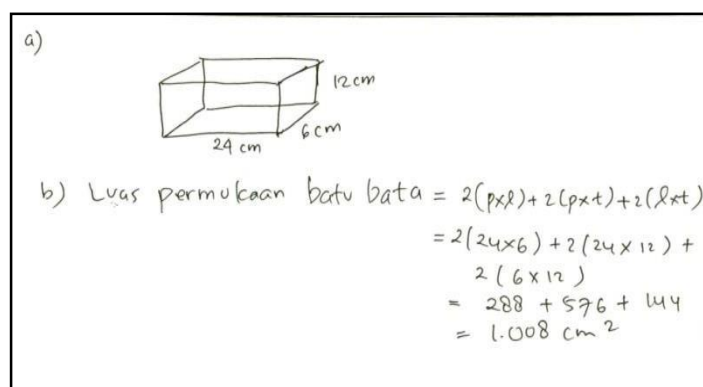 a)
12 cm
6 cm
24 cm
b) Luas permukaan batu bata = 2(pxl) + 2(pxt) + 2(lxt)
= 2(24x6) + 2(24 x 12) +
2 (6 x 12)
= 288 + 576 + 144
= 1.008 cm²